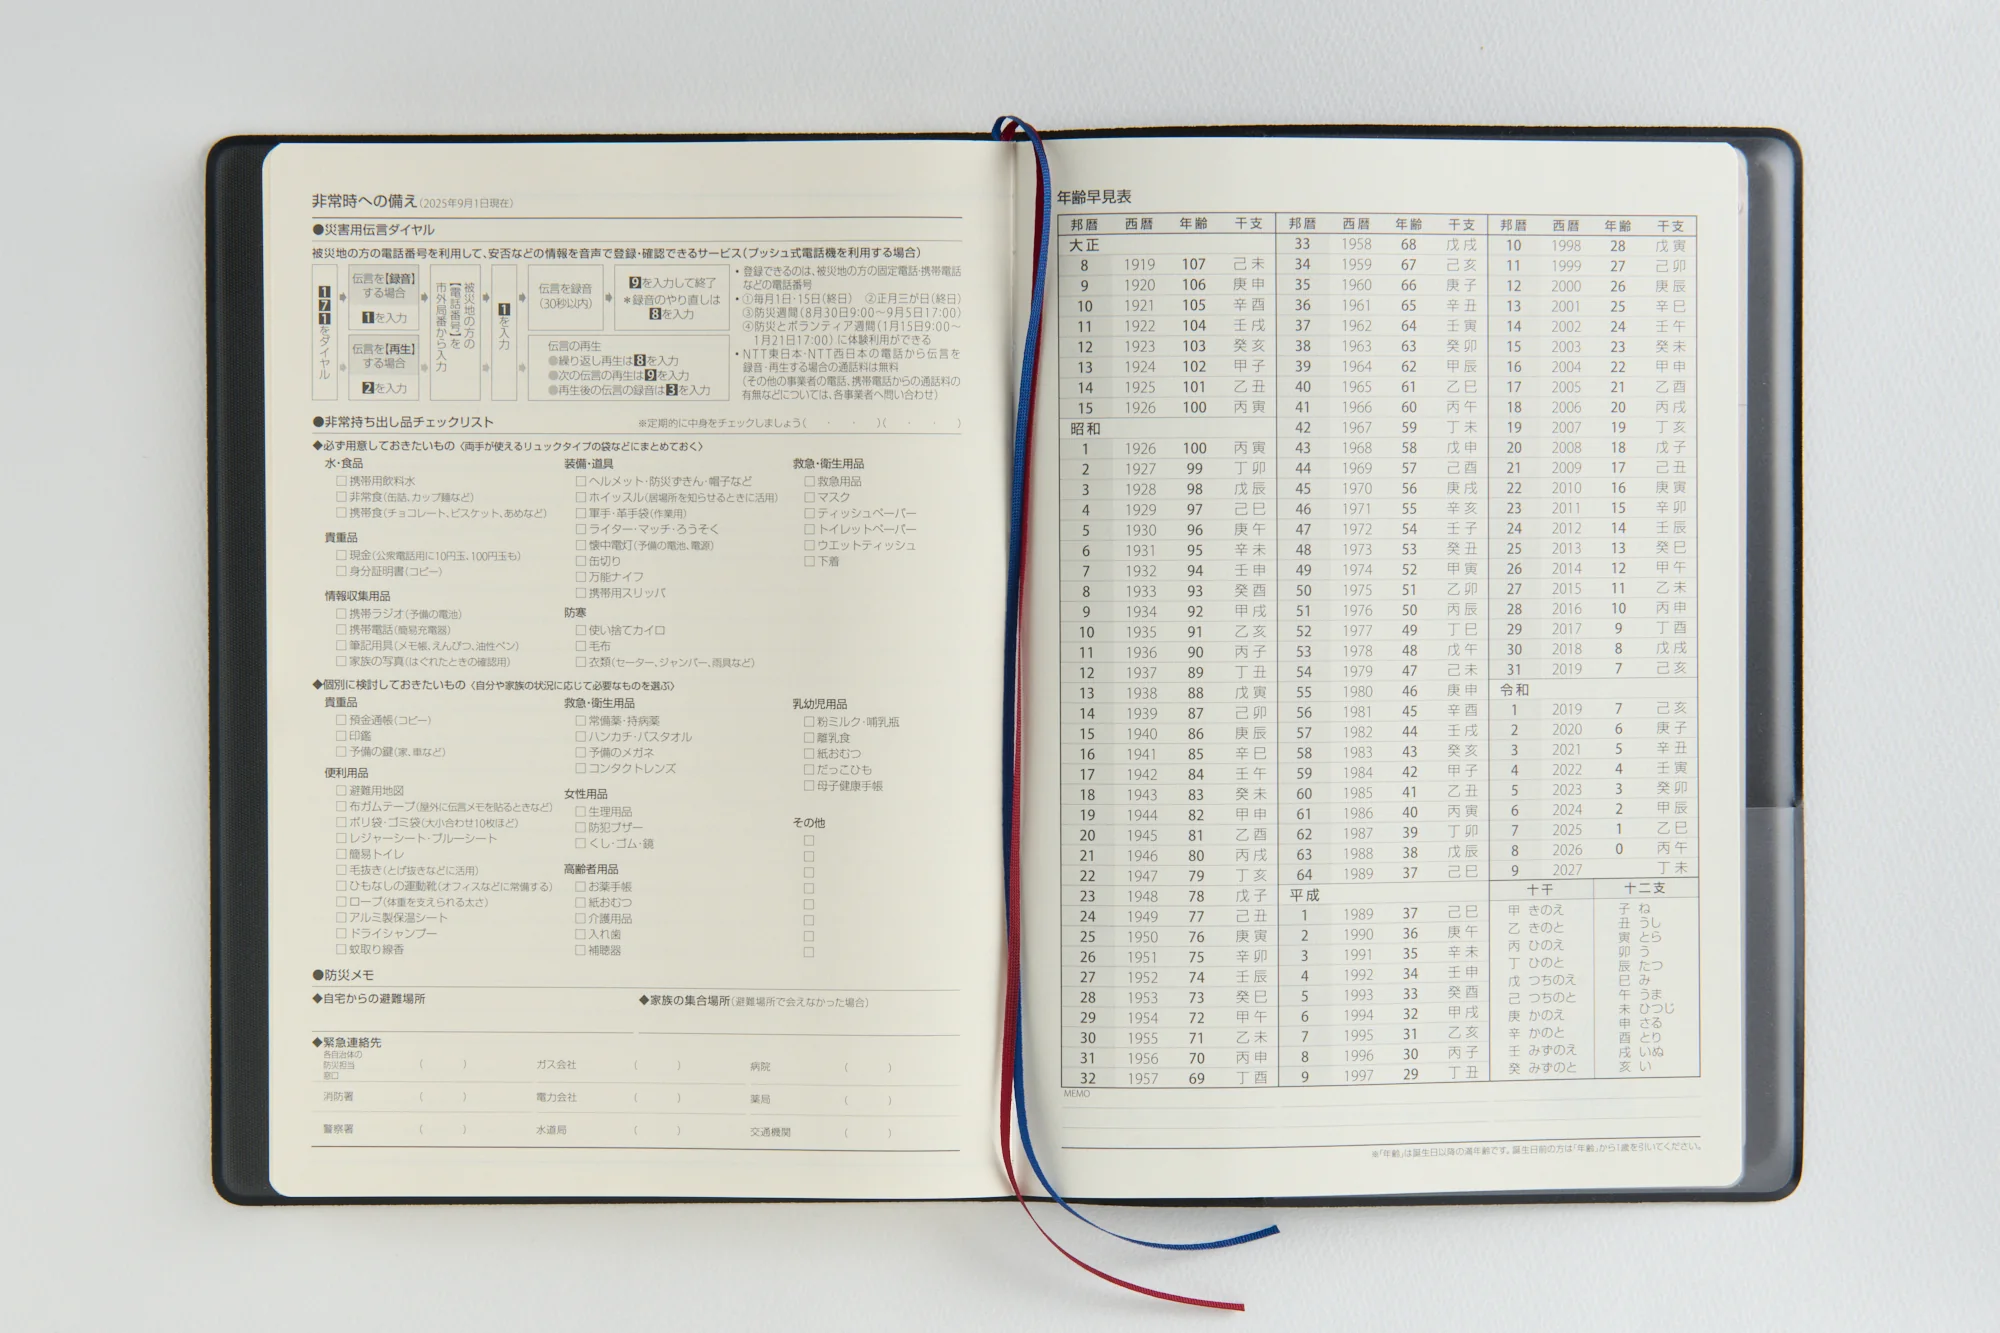 非常時への備え(2025年9月1日現在)
●災害用伝言ダイヤル
被災地の方の電話番号を利用して、安否などの情報を音声で登録・確認できるサービス(プッシュ式電話機を利用する場合)
171をダイヤル
伝言を【録音】
する場合
1を入力
伝言を【再生】
する場合
2を入力
被災地の方の
【電話番号】を
市外局番から入力
1を入力
伝言を録音
(30秒以内)
9を入力して終了
*録音のやり直しは
8を入力
伝言の再生
●繰り返し再生は8を入力
●次の伝言の再生は9を入力
●再生後の伝言の録音は3を入力
・登録できるのは、被災地の方の固定電話・携帯電話
などの電話番号
・①毎月1日・15日(終日) ②正月三が日(終日)
③防災週間(8月30日9:00〜9月5日17:00)
④防災とボランティア週間(1月15日9:00〜
1月21日17:00)に体験利用ができる
・NTT東日本・NTT西日本の電話から伝言を
録音・再生する場合の通話料は無料
(その他の事業者の電話、携帯電話からの通話料の
有無などについては、各事業者へ問い合わせ)
●非常持ち出し品チェックリスト ※定期的に中身をチェックしましょう( ・ ・ )( ・ ・ )
◆必ず用意しておきたいもの〈両手が使えるリュックタイプの袋などにまとめておく〉
水・食品
□携帯用飲料水
□非常食(缶詰、カップ麺など)
□携帯食(チョコレート、ビスケット、あめなど)
貴重品
□現金(公衆電話用に10円玉、100円玉も)
□身分証明書(コピー)
情報収集用品
□携帯ラジオ(予備の電池)
□携帯電話(簡易充電器)
□筆記用具(メモ帳、えんぴつ、油性ペン)
□家族の写真(はぐれたときの確認用)
装備・道具
□ヘルメット・防災ずきん・帽子など
□ホイッスル(居場所を知らせるときに活用)
□軍手・革手袋(作業用)
□ライター・マッチ・ろうそく
□懐中電灯(予備の電池、電源)
□缶切り
□万能ナイフ
□携帯用スリッパ
防寒
□使い捨てカイロ
□毛布
□衣類(セーター、ジャンパー、雨具など)
救急・衛生用品
□救急用品
□マスク
□ティッシュペーパー
□トイレットペーパー
□ウエットティッシュ
□下着
◆個別に検討しておきたいもの〈自分や家族の状況に応じて必要なものを選ぶ〉
貴重品
□預金通帳(コピー)
□印鑑
□予備の鍵(家、車など)
便利用品
□避難用地図
□布ガムテープ(屋外に伝言メモを貼るときなど)
□ポリ袋・ゴミ袋(大小合わせ10枚ほど)
□レジャーシート・ブルーシート
□簡易トイレ
□毛抜き(とげ抜きなどに活用)
□ひもなしの運動靴(オフィスなどに常備する)
□ロープ(体重を支えられる太さ)
□アルミ製保温シート
□ドライシャンプー
□蚊取り線香
救急・衛生用品
□常備薬・持病薬
□ハンカチ・バスタオル
□予備のメガネ
□コンタクトレンズ
女性用品
□生理用品
□防犯ブザー
□くし・ゴム・鏡
高齢者用品
□お薬手帳
□紙おむつ
□介護用品
□入れ歯
□補聴器
乳幼児用品
□粉ミルク・哺乳瓶
□離乳食
□紙おむつ
□だっこひも
□母子健康手帳
その他
□
□
□
□
□
□
□
□
●防災メモ
◆自宅からの避難場所 ◆家族の集合場所(避難場所で会えなかった場合)
◆緊急連絡先
各自治体の
防災担当
窓口
( ) ガス会社 ( ) 病院 ( )
消防署 ( ) 電力会社 ( ) 薬局 ( )
警察署 ( ) 水道局 ( ) 交通機関 ( )
年齢早見表
邦暦 西暦 年齢 干支
大正
8 1919 107 己未
9 1920 106 庚申
10 1921 105 辛酉
11 1922 104 壬戌
12 1923 103 癸亥
13 1924 102 甲子
14 1925 101 乙丑
15 1926 100 丙寅
昭和
1 1926 100 丙寅
2 1927 99 丁卯
3 1928 98 戊辰
4 1929 97 己巳
5 1930 96 庚午
6 1931 95 辛未
7 1932 94 壬申
8 1933 93 癸酉
9 1934 92 甲戌
10 1935 91 乙亥
11 1936 90 丙子
12 1937 89 丁丑
13 1938 88 戊寅
14 1939 87 己卯
15 1940 86 庚辰
16 1941 85 辛巳
17 1942 84 壬午
18 1943 83 癸未
19 1944 82 甲申
20 1945 81 乙酉
21 1946 80 丙戌
22 1947 79 丁亥
23 1948 78 戊子
24 1949 77 己丑
25 1950 76 庚寅
26 1951 75 辛卯
27 1952 74 壬辰
28 1953 73 癸巳
29 1954 72 甲午
30 1955 71 乙未
31 1956 70 丙申
32 1957 69 丁酉
邦暦 西暦 年齢 干支
33 1958 68 戊戌
34 1959 67 己亥
35 1960 66 庚子
36 1961 65 辛丑
37 1962 64 壬寅
38 1963 63 癸卯
39 1964 62 甲辰
40 1965 61 乙巳
41 1966 60 丙午
42 1967 59 丁未
43 1968 58 戊申
44 1969 57 己酉
45 1970 56 庚戌
46 1971 55 辛亥
47 1972 54 壬子
48 1973 53 癸丑
49 1974 52 甲寅
50 1975 51 乙卯
51 1976 50 丙辰
52 1977 49 丁巳
53 1978 48 戊午
54 1979 47 己未
55 1980 46 庚申
56 1981 45 辛酉
57 1982 44 壬戌
58 1983 43 癸亥
59 1984 42 甲子
60 1985 41 乙丑
61 1986 40 丙寅
62 1987 39 丁卯
63 1988 38 戊辰
64 1989 37 己巳
平成
1 1989 37 己巳
2 1990 36 庚午
3 1991 35 辛未
4 1992 34 壬申
5 1993 33 癸酉
6 1994 32 甲戌
7 1995 31 乙亥
8 1996 30 丙子
9 1997 29 丁丑
邦暦 西暦 年齢 干支
10 1998 28 戊寅
11 1999 27 己卯
12 2000 26 庚辰
13 2001 25 辛巳
14 2002 24 壬午
15 2003 23 癸未
16 2004 22 甲申
17 2005 21 乙酉
18 2006 20 丙戌
19 2007 19 丁亥
20 2008 18 戊子
21 2009 17 己丑
22 2010 16 庚寅
23 2011 15 辛卯
24 2012 14 壬辰
25 2013 13 癸巳
26 2014 12 甲午
27 2015 11 乙未
28 2016 10 丙申
29 2017 9 丁酉
30 2018 8 戊戌
31 2019 7 己亥
令和
1 2019 7 己亥
2 2020 6 庚子
3 2021 5 辛丑
4 2022 4 壬寅
5 2023 3 癸卯
6 2024 2 甲辰
7 2025 1 乙巳
8 2026 0 丙午
9 2027 丁未
十干
甲 きのえ
乙 きのと
丙 ひのえ
丁 ひのと
戊 つちのえ
己 つちのと
庚 かのえ
辛 かのと
壬 みずのえ
癸 みずのと
十二支
子 ね
丑 うし
寅 とら
卯 う
辰 たつ
巳 み
午 うま
未 ひつじ
申 さる
酉 とり
戌 いぬ
亥 い
MEMO
※「年齢」は誕生日以降の満年齢です。誕生日前の方は「年齢」から1歳を引いてください。